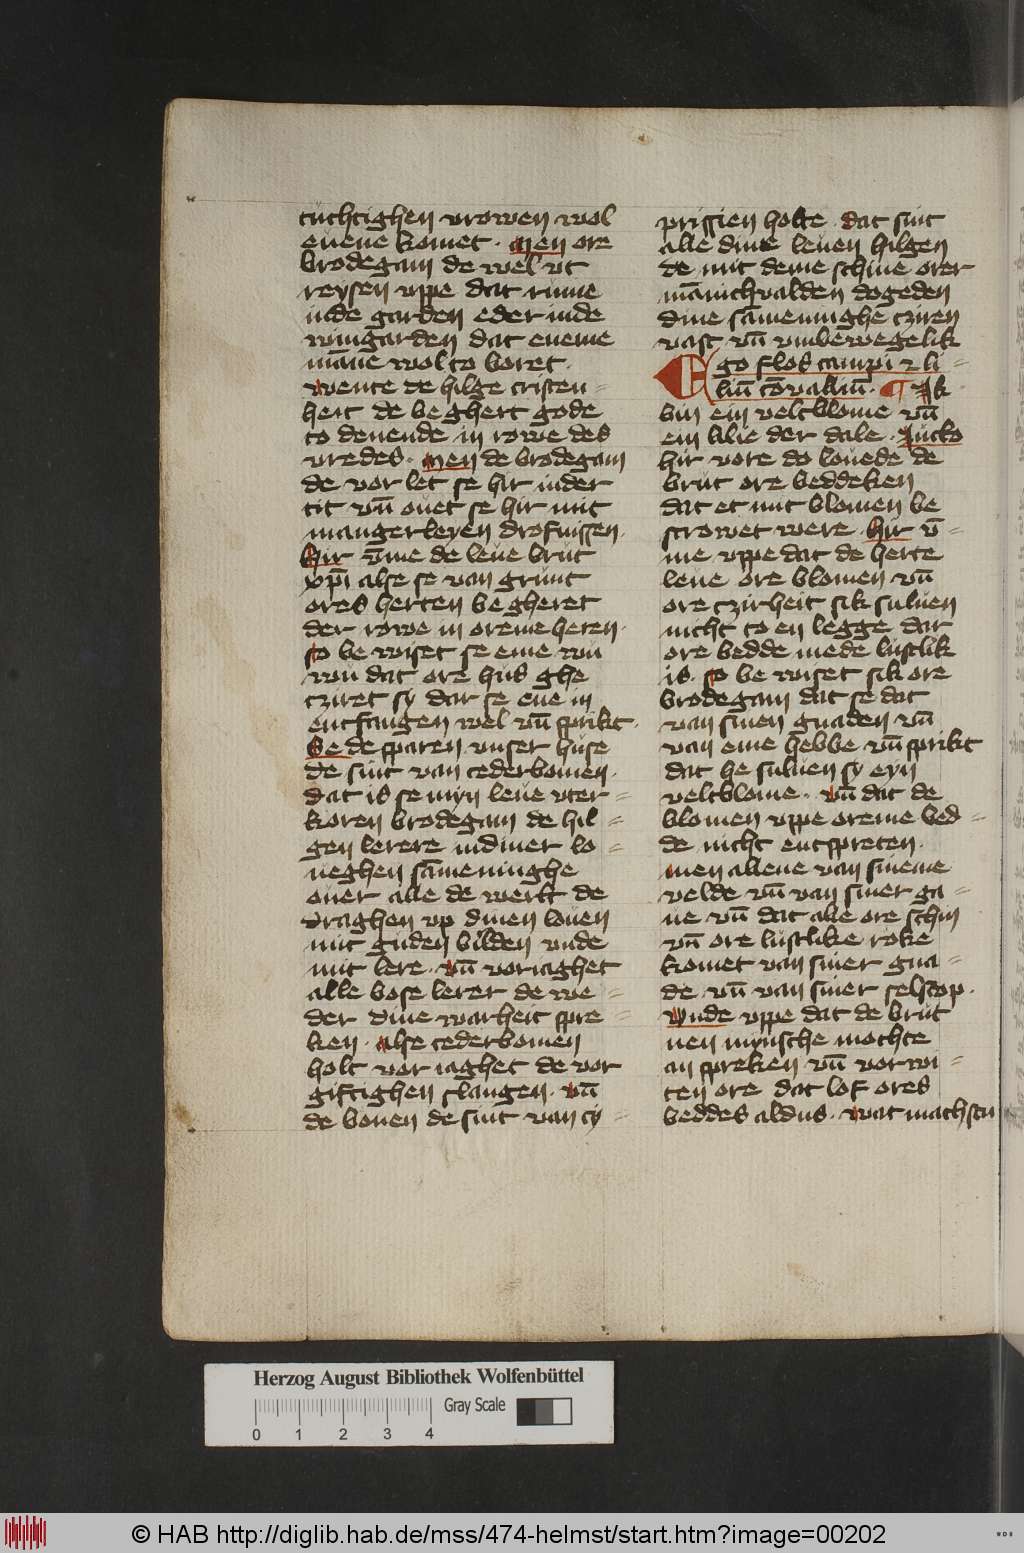 tuchtighen vrowen wol
euene komet · Men ore
brodegam de wel vt
reysen vppe dat rume
inde garden eder inde
wingarden dat eneme
māne wol to boret ·
wente de hilge cristen=
heit de beghert gode
to denende in rowe des
vredes · Men de brodegam
de vor let se hir inder
tit vn̄ ouet se hir mit
mangerleyen drofnissen ·
Hir v̄me de leue brut
xp̄i alse se van grunt
ores herten begheret
der rowe in oreme herten ·
so bewiset se eme wu
wu dat ore hus ghe
cziret sy dar se ene in
entfangen wel vn̄ sprikt ·
De de sparen vnser huse
de sint van cederbomen ·
dat is se myn leue vter=
koren brodegam de hil=
gen lerere in diner lo=
ueghen sāmeninghe
ouer alle de werlt de
draghen vp dinen louen
mit guden bilden vnde
mit lere · vn̄ voriaghet
alle bose lerer de we=
der dine warheit spre=
ken · alse cederbomen
holt voriaghet de vor
giftighen slangen · vn̄
de bouen de sint van cy=
prissien holte · dat sint
alle dine leuen hilgen
de mit deme schine orer
mānichualden dogeden
dine sāmeninghe cziren
vast vn̄ vmbewegelik
Ego flos campi ⁊ li=
liū cōualliū · ¶ Ik
bin ein veltblome vn̄
ein lilie der dale · Jucko
hir vore do louede de
brut ore beddeken
dat et mit blomen be
strowet were · Hir v̄=
me vppe dat de herte
leue ore blomen vn̄
ore czirheit sik suluen
nicht to en legge dar
ore bedde mede lustlik
is · so bewiset sik ore
brodegam dat se dat
van sinen gnaden vn̄
van eme hebbe vn̄ sprikt
dat he suluen sy eyn
veltblome · vn̄ dat de
blomen vppe oreme bed=
de nicht entspreten ·
men allene van sineme
velde vn̄ van siner ga=
ue vn̄ dat alle ore schin
vn̄ ore lustlike roke
komet van siner gna=
de vn̄ van siner selscop ·
Vnde vppe dat de brut
nen mynsche mochte
an spreken vn̄ vorwi=
ten ore dat lof ores
beddes aldus · wat machstu
Herzog August Bibliothek Wolfenbüttel
Gray Scale
0 1 2 3 4
© HAB http://diglib.hab.de/mss/474-helmst/start.htm?image=00202